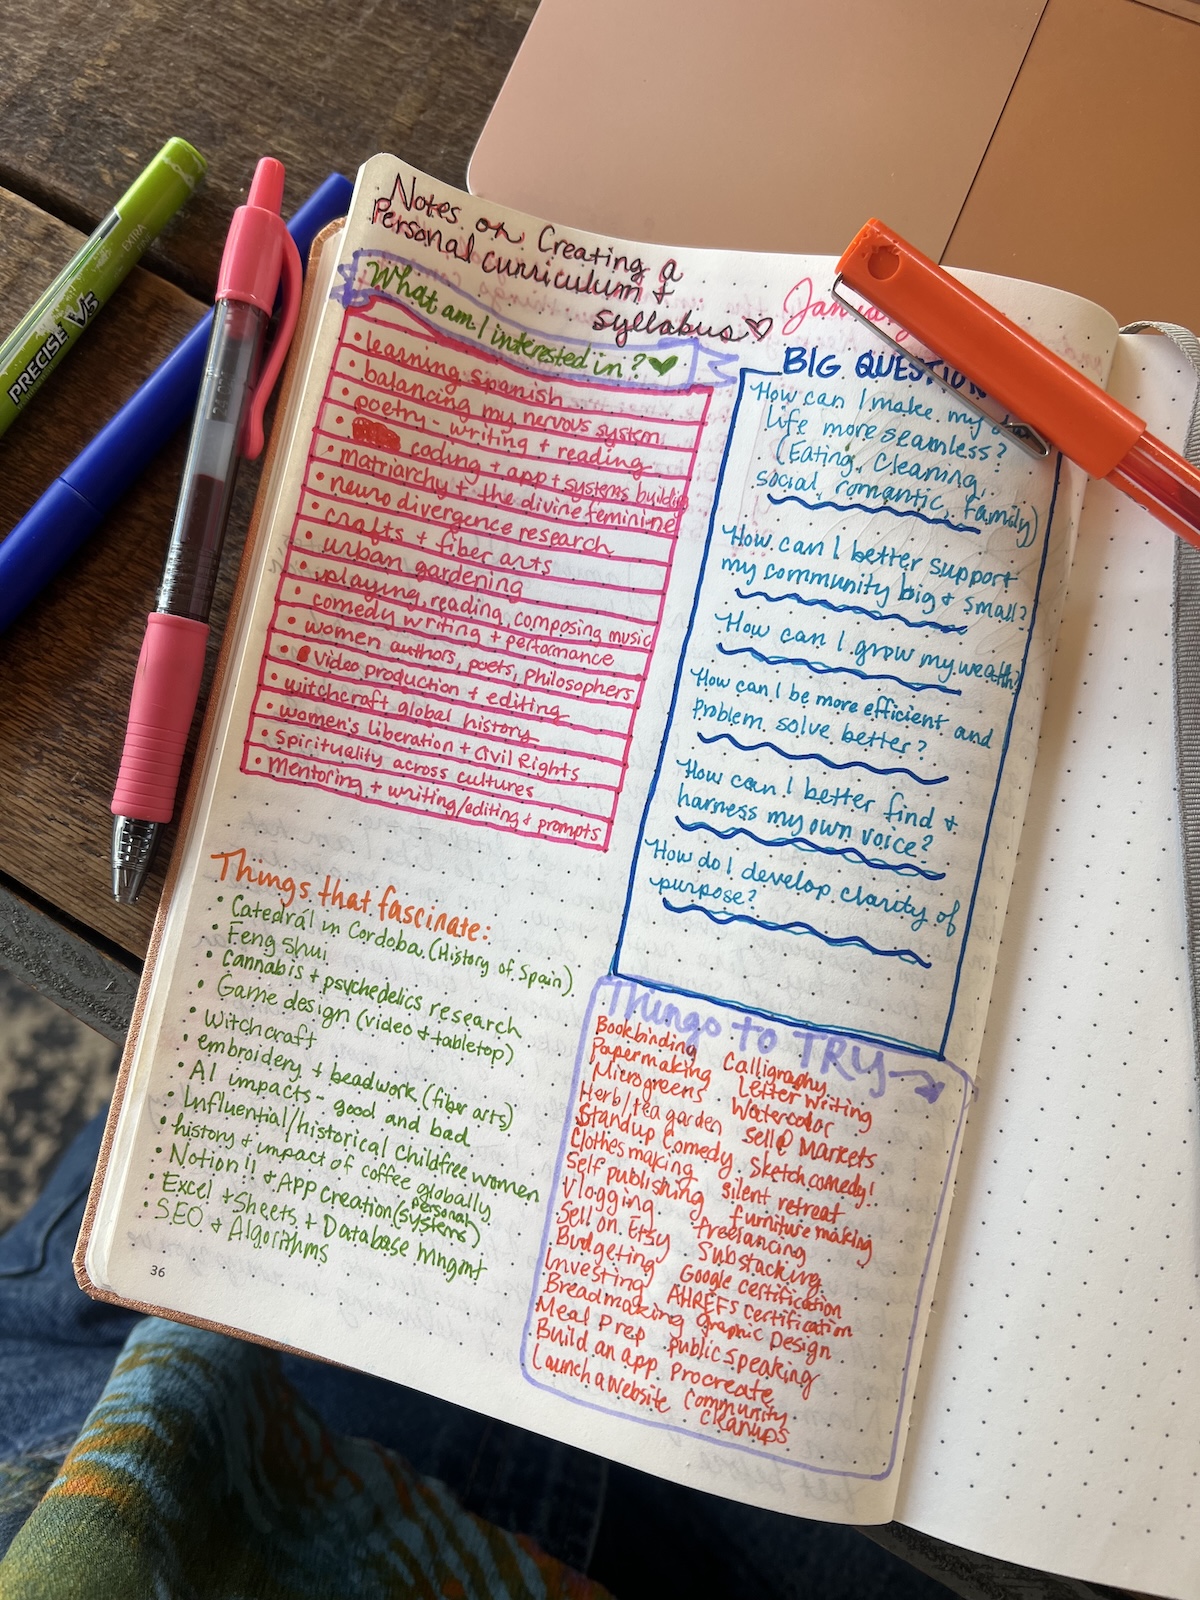 Notes on Creating a
Personal curriculum +
Syllabus
What am I interested in?
• learning Spanish
• balancing my nervous system
• poetry - writing + reading
• coding + app + systems building
• matriarchy + the divine feminine
• neuro divergence research
• crafts + fiber arts
• urban gardening
• playing, reading, composing music
• comedy writing + performance
• women authors, poets, philosophers
• Video production + editing
• witchcraft global history
• women's liberation + Civil Rights
• Spirituality across cultures
• Mentoring + writing/editing + prompts
Things that fascinate:
• Catedrál in Cordoba (History of Spain)
• Feng shui
• Cannabis + psychedelics research
• Game design (video + tabletop)
• Witchcraft
• embroidery + beadwork (fiber arts)
• AI impacts - good and bad
• Influential/historical childfree women
• history + impact of coffee globally
• Notion!! + App creation (personal
systems)
• Excel + Sheets + Database Mngmt
• SEO + Algorithms
36
BIG
How can I make my
life more seamless?
(Eating, Cleaning,
social, romantic, family)
How can I better support
my community big + small?
How can I grow my wealth?
How can I be more efficient and
problem solve better?
How can I better find +
harness my own voice?
How do I develop clarity of
purpose?
Things to TRY
Bookbinding Calligraphy
Papermaking Letter writing
Microgreens Watercolor
Herb/tea garden Sell @ Markets
Standup Comedy Sketch comedy!
Clothes making Silent retreat
Self publishing furniture making
Vlogging freelancing
Sell on Etsy Substacking
Budgeting Google certification
Investing AHREFs certification
Breadmaking Graphic Design
Meal Prep public speaking
Build an app Procreate
Launch a website Community
cleanups
PRECISE V5
EXTRA